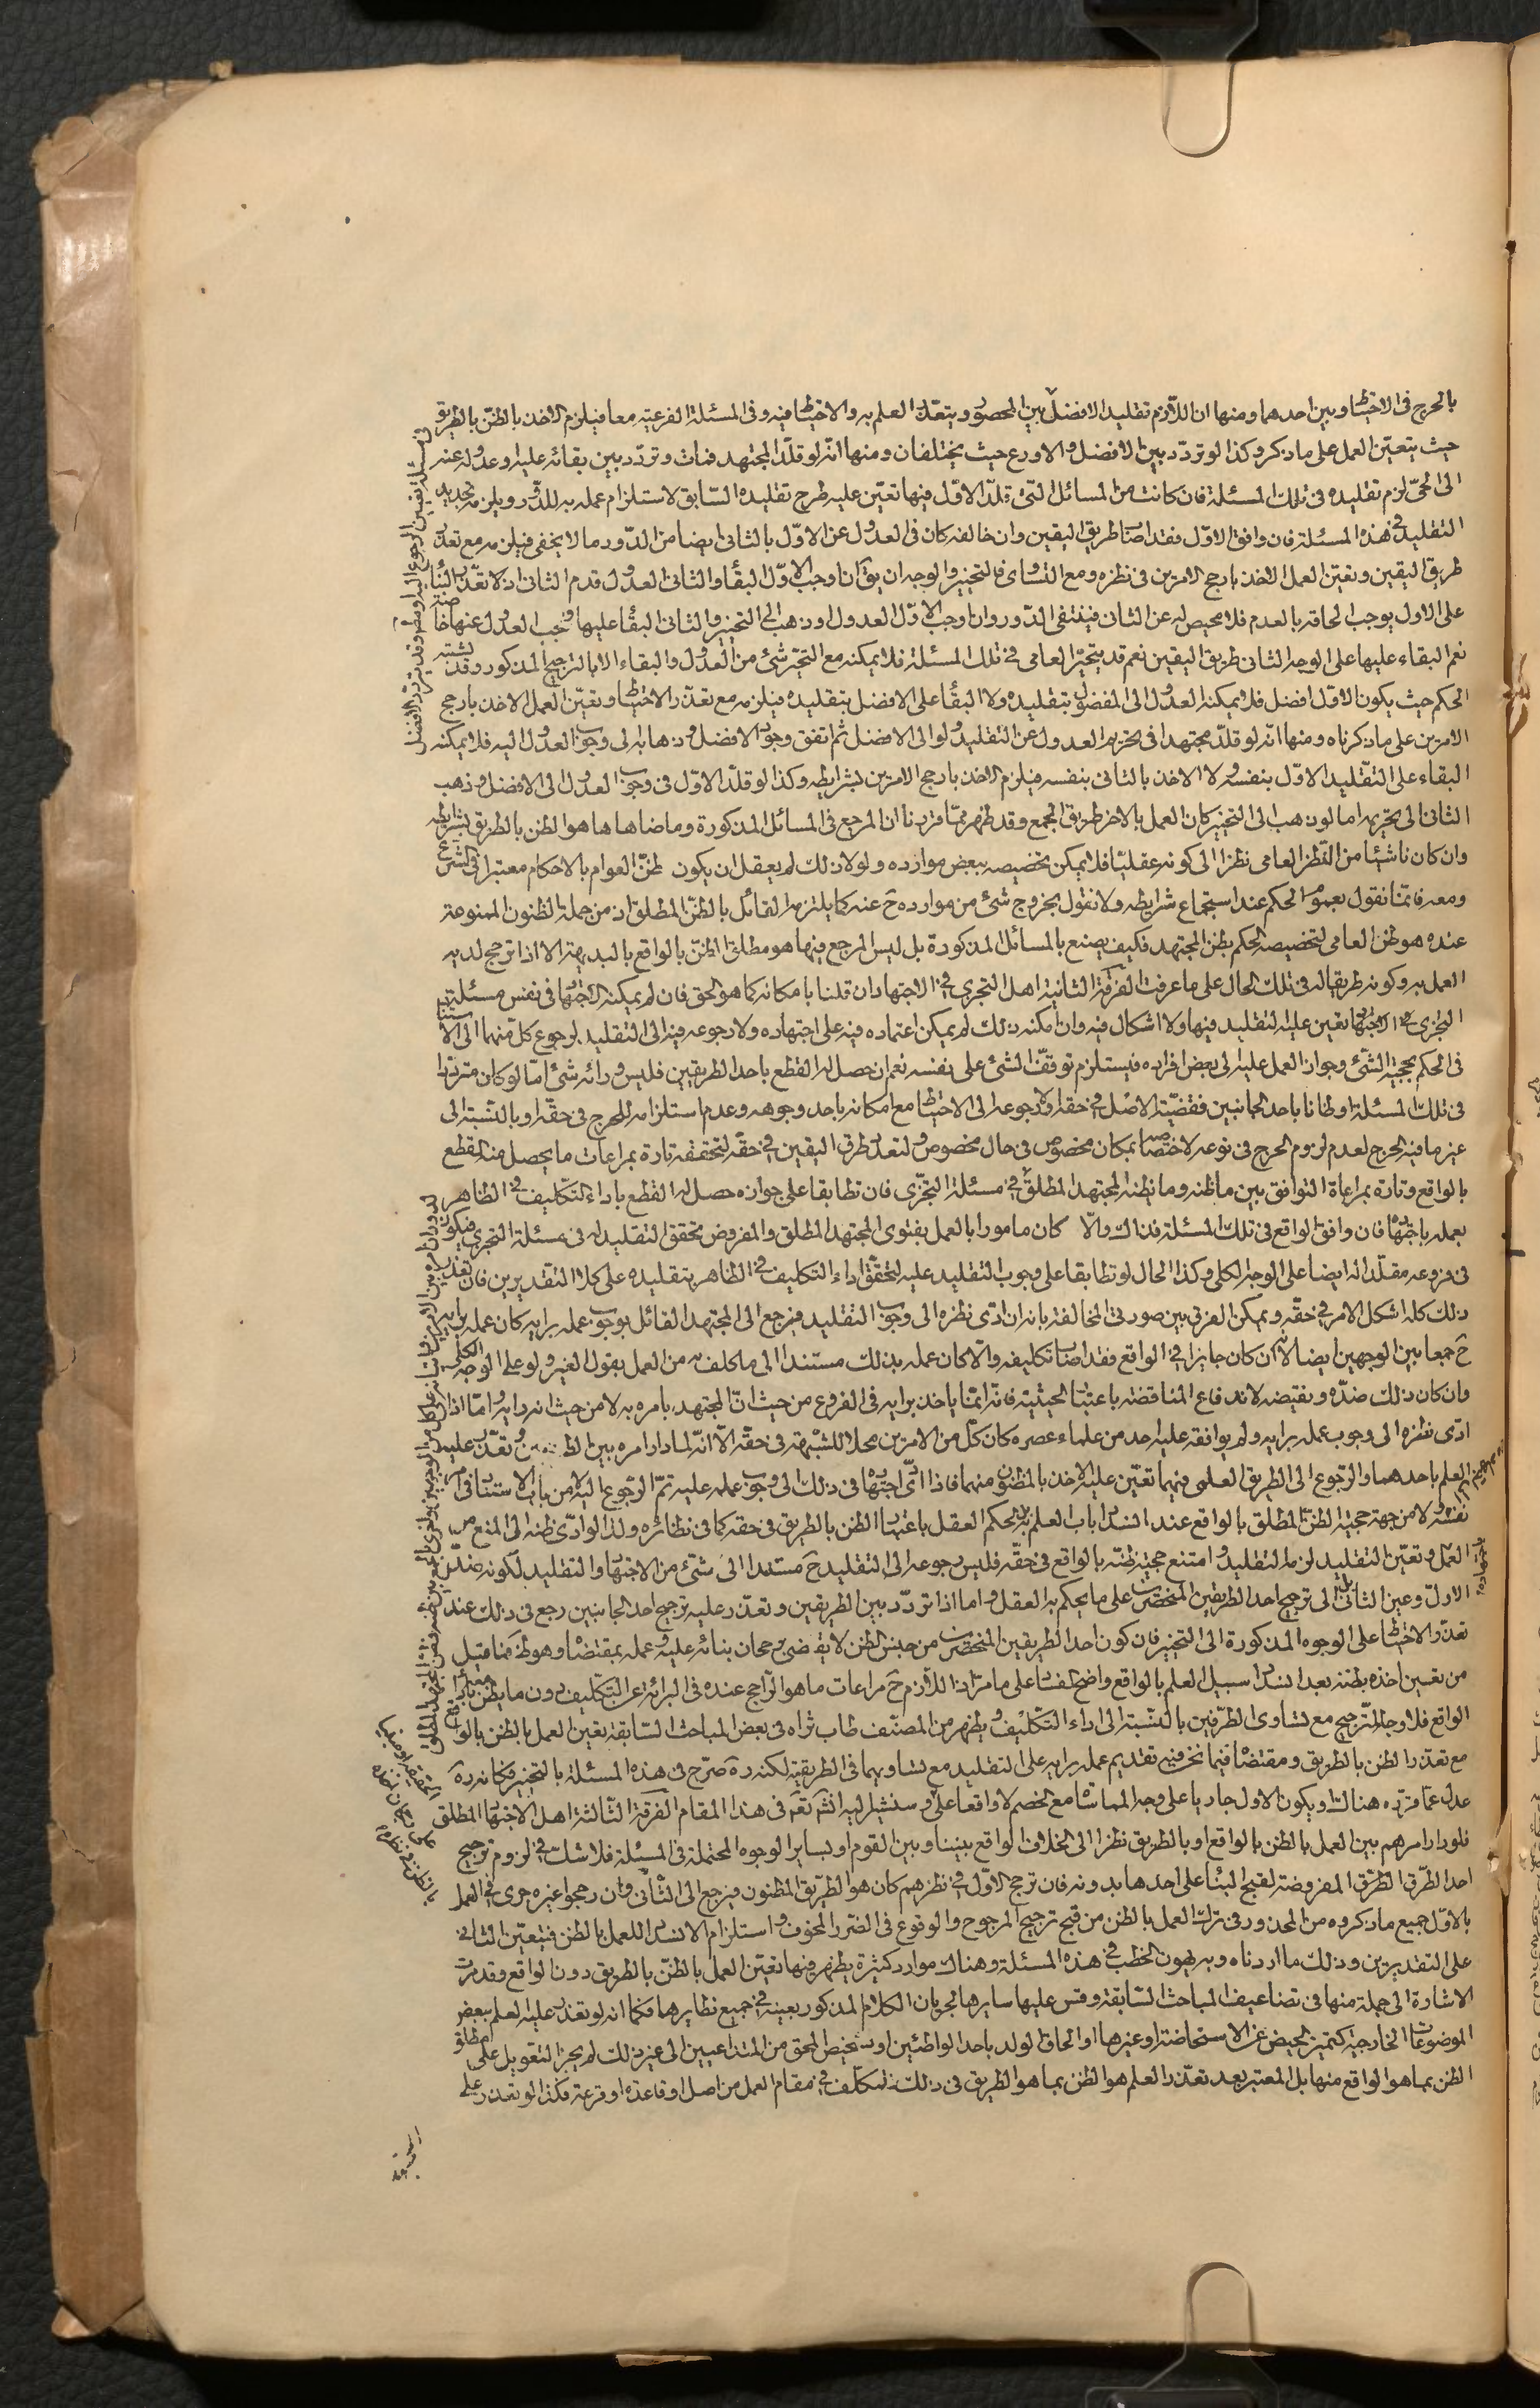 بالحرج فى الاحتياط وبين احدهما ومنها ان اللازم تقليد الافضل بين المحصور ويتعذر العلم به والاحتياط فيه وفى المسئلة الفرعية معا فيلزم الاخذ بالظن بالطريق
حيث يتعين العمل على ما ذكر وكذا لو تردد بين الافضل والاورع حيث يختلفان ومنها انه لو قلد المجتهد فمات وتردد بين بقائه عليه وعدوله عنه
الى الحى لزم تقليده فى تلك المسئلة فان كانت من المسائل التى قلد الاول فيها تعين عليه طرح تقليده السابق لاستلزام عمله به للدور ويلزمه تجديد
التقليد فى هذه المسئلة فان وافق الاول فقد اصاب طريق اليقين وان خالفه كان فى العدول عن الاول بالثانى ايضا من الدور ما لا يخفى فيلزمه مع تعذر
طريق اليقين وتعين العمل الاخذ بارجح الامرين فى نظره ومع التساوى فالتخيير والوجه ان يق ان اوجب الاول البقاء والثانى العدول قدم الثانى اذ لا تعذر البناء
على الاول يوجب الحاقه بالعدم فلا محيص له عن الثانى فينتفى الدور وان اوجب الاول العدول او ذهب الى التخيير والثانى البقاء عليها وجب العدول عنها خاصة
نعم البقاء عليها على الوجه الثانى طريق اليقين نعم قد يتحير العامى فى تلك المسئلة فلا يمكنه مع التحير شئ من العدول والبقاء الا بالترجيح المذكور وقد يشتبه
الحكم حيث يكون الاول افضل فلا يمكنه العدول الى المفضول بتقليده ولا البقاء على الافضل بتقليده فيلزمه مع تعذر الاحتياط وتعين العمل الاخذ بارجح
الامرين على ما ذكرناه ومنها انه لو قلد مجتهدا فى تحريم العدول عن التقليد ولو الى الافضل ثم اتفق وجود الافضل وذهابه الى وجوب العدول اليه فلا يمكنه
البقاء على التقليد الاول بنفسه ولا الاخذ بالثانى بنفسه فيلزم الاخذ بارجح الامرين بشرايطه وكذا لو قلد الاول فى وجوب العدول الى الافضل وذهب
الثانى الى تحريمه اما لو ذهب الى التخيير كان العمل بالاخر طريق الجمع وقد ظهر مما قررنا ان المرجع فى المسائل المذكورة وما ضاهاها هو الظن بالطريق بشرايطه
وان كان ناشئا من النظر العامى نظرا الى كونه عقليا فلا يمكن تخصيصه ببعض موارده ولولا ذلك لم يعقل ان يكون ظن العوام بالاحكام معتبرا فى الشرع
ومعه فانما نقول بعموم الحكم عند استجماع شرايطه ولا نقول بخروج شئ من موارده ح عنه كما يلتزمه القائل بالظن المطلق اذ من جملة الظنون الممنوعة
عنده هو ظن العامى لتخصيصه الحكم بظن المجتهد فكيف يصنع بالمسائل المذكورة بل ليس المرجع فيها هو مطلق الظن بالواقع بالبديهة الا اذا ترجح لديه
العمل به وكونه طريقا له فى تلك الحال على ما عرفت الفرقة الثانية اهل التجزى فى الاجتهاد ان قلنا بامكانه كما هو الحق فان لم يمكنه الاجتهاد فى نفس مسئلة
التجزى فى الاجتهاد تعين عليه التقليد فيها ولا اشكال فيه وان امكنه ذلك لم يمكن اعتماده فيه على اجتهاده ولا رجوعه فيه الى التقليد لرجوع كل منهما الى الاستناد
فى الحكم بحجية الشئ وجواز العمل عليه الى بعض افراده فيستلزم توقف الشئ على نفسه نعم ان حصل له القطع باحد الطريقين فليس ورائه شئ اما لو كان مترددا
فى تلك المسئلة او ظانا باحد الجانبين فقضية الاصل فى حقه اولا رجوعه الى الاحتياط مع امكانه باحد وجوهه وعدم استلزامه للحرج فى حقه او بالنسبة الى
غير ما فيه الحرج لعدم لزوم الحرج فى نوعه لاختصاصه بمكان مخصوص فى حال مخصوص ولتعدد طرق اليقين فى حقه لتحققه تارة بمراعات ما يحصل منه القطع
بالواقع وتارة بمراعاة التوافق بين ما ظنه وما يظنه المجتهد المطلق فى مسئلة التجزى فان تطابقا على جوازه حصل له القطع باداء التكليف فى الظاهر
بعمله باجتهاده فان وافق الواقع فى تلك المسئلة فذاك والا كان مامورا بالعمل بفتوى المجتهد المطلق والمفروض تحقق التقليد له فى مسئلة التجزى فيكون
فى فروعه مقلدا له ايضا على الوجه الكلى وكذا الحال لو تطابقا على وجوب التقليد عليه لتحقق اداء التكليف فى الظاهر بتقليده على كلا التقديرين فان تعذر
ذلك كله اشكل الامر فى حقه ويمكن الفرق بين صورتى المخالفة بانه ان ادى نظره الى وجوب التقليد فيرجع الى المجتهد القائل بوجوب عمله برايه كان عمله برايه
ح جمعا بين الوجهين ايضا لانه ان كان جايزا فى الواقع فقد اصاب تكليفه والا كان عمله بذلك مستندا الى ما كلف به من العمل بقول الغير ولو على الوجه الكلى
وان كان ذلك ضده ونقيضه لاندفاع المناقضة باعتبار الحيثية فانه انما ياخذ برايه فى الفروع من حيث ان المجتهد يامره به لا من حيث انه رايه واما اذا
ادى نظره الى وجوب عمله برايه ولم يوافقه عليه احد من علماء عصره كان كل من الامرين محلا للشبهة فى حقه الا انه لما دار امره بين وتعذر عليه
العلم باحدهما والرجوع الى الطريق العلمى فيهما تعين عليه الاخذ بالمظنون منهما فاذا ادى اجتهاده فى ذلك الى وجوب عمله عليه تم الرجوع اليه من باب الاستناد فى
نفسه لا من جهة حجية الظن المطلق بالواقع عند انسداد باب العلم به بل لحكم العقل باعتبار الظن بالطريق فى حقه كما فى نظائره ولذا لو ادى ظنه الى المنع من
العمل وتعين التقليد لزمه التقليد وامتنع حجية ظنه بالواقع فى حقه فليس رجوعه الى التقليد ح مستندا الى شئ من الاجتهاد والتقليد لكونه ضد
الاول وعين الثانى بل الى ترجيح احد الطريقين المنحصرين على ما يحكم به العقل واما اذا تردد بين الطريقين وتعذر عليه ترجيح احد الجانبين رجع فى ذلك عند
تعذر الاحتياط على الوجوه المذكورة الى التخيير فان كون احد الطريقين المنحصرين من جنس الظن لا يقضى برجحان بنائه عليه وعمله بمقتضاه وهو ظ فما قيل
من تعيين اخذه بظنه بعد انسداد سبيل العلم بالواقع واضح الفساد على ما مر اذ اللازم ح مراعات ما هو الراجح عنده فى البرائة عن التكليف دون ما يظن بارتفاع
الواقع فلا وجه للترجيح مع تساوى الطرفين بالنسبة الى اداء التكليف ويظهر من المصنف طاب ثراه فى بعض المباحث السابقة تعين العمل بالظن بالواقع
مع تعذر الظن بالطريق ومقتضاه فيما نحن فيه تقديم عمله برايه على التقليد مع تساويهما فى الطريقية لكنه ره صرح فى هذه المسئلة بالتخيير فكانه ره
عدل عما قرره هنالك ويكون الاول جاريا على وجه المماشاة مع الخصم لا واقعا عليه وسنشير اليه انشاء تعالى فى هذا المقام الفرقة الثالثة اهل الاجتهاد المطلق
فلو دار امرهم بين العمل بالظن بالواقع او بالطريق نظرا الى الخلاف الواقع بيننا وبين القوم او لساير الوجوه المحتملة فى المسئلة فلا شك فى لزوم ترجيح
احد الطرق الطرق المفروضة لقبح البناء على احدها بدونه فان ترجح الاول فى نظرهم كان هو الطريق المظنون فيرجع الى الثانى وان رجحوا غيره جرى فى العمل
بالاول جميع ما ذكروه من المحذور فى ترك العمل بالظن من قبح ترجيح المرجوح والوقوع فى الضرر المخوف واستلزام الانسداد للعمل بالظن فيتعين الثانى
على التقديرين وذلك ما اردناه وبه يهون الخطب فى هذه المسئلة وهناك موارد كثيرة يظهر فيها تعين العمل بالظن بالطريق دون الواقع وقد مرت
الاشارة الى جملة منها فى تضاعيف المباحث السابقة وقس عليها سايرها لجريان الكلام المذكور بعينه فى جميع نظايرها فكما انه لو تعذر عليه العلم ببعض
الموضوعات الخارجية كتمييز الحيض عن الاستحاضة او غيرها او الحاق الولد باحد الواطئين او تشخيص المحق من المتداعيين الى غير ذلك لم يجز التعويل على مطلق
الظن بما هو الواقع منها بل المعتبر بعد تعذر العلم هو الظن بما هو الطريق فى ذلك للمكلف فى مقام العمل من اصل او قاعدة او قرعة فكذا لو تعذر على